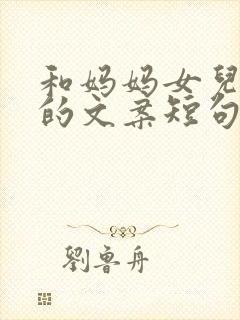 和妈妈女兒
的文案短句
劉魯舟